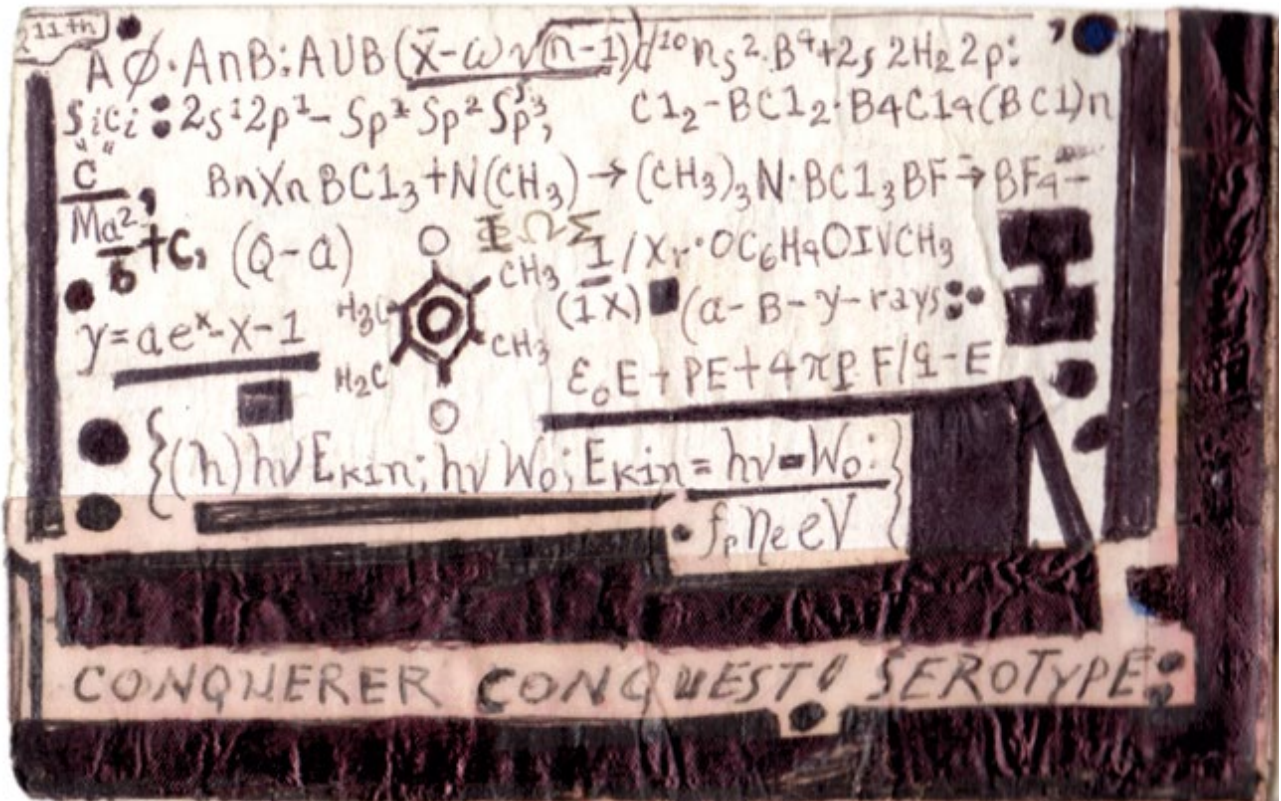 11th
AØ·AnB:AUB(x̄-ω√(n-1))d¹⁰ns²·B⁹+2s 2H₂2p:
SiCi:2s¹2p¹-Sp¹Sp²Sp³; Cl₂-BCl₂·B4Cl4(BCl)n
C/Ma², BnXnBCl₃+N(CH₃)→(CH₃)₃N·BCl₃BF→BF₄-
ΦΩΣ
/6+C, (Q-a) O CH₃ 1/x·OC₆H₄OIVCH₃
H₃C (1x) (a-B-y-rays:
y=aeˣ-x-1 CH₃
H₂C ε₀E+PE+4πp F/q-E
O
{(h)hνEkin;hνW₀;Ekin=hν-W₀:}
fₚηₑeV
CONQUERER CONQUEST SEROTYPE: